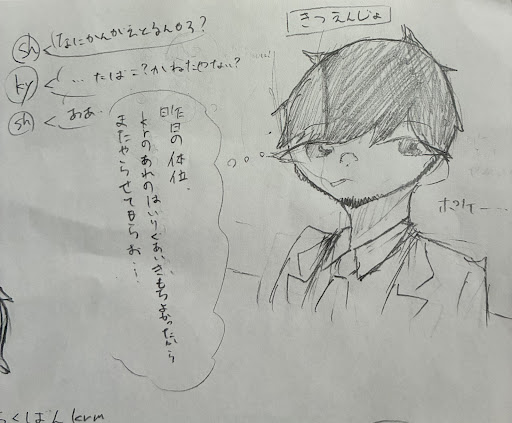 きつえんじょ
sh なにかんがえとるんやろ?
ky …たばこ?かねたやない?
sh おあ…
昨日の体位、
トトのあれのはいりぐあいきもちよかったから
またやらせてもらお…
ボケー…
らくばんkrm